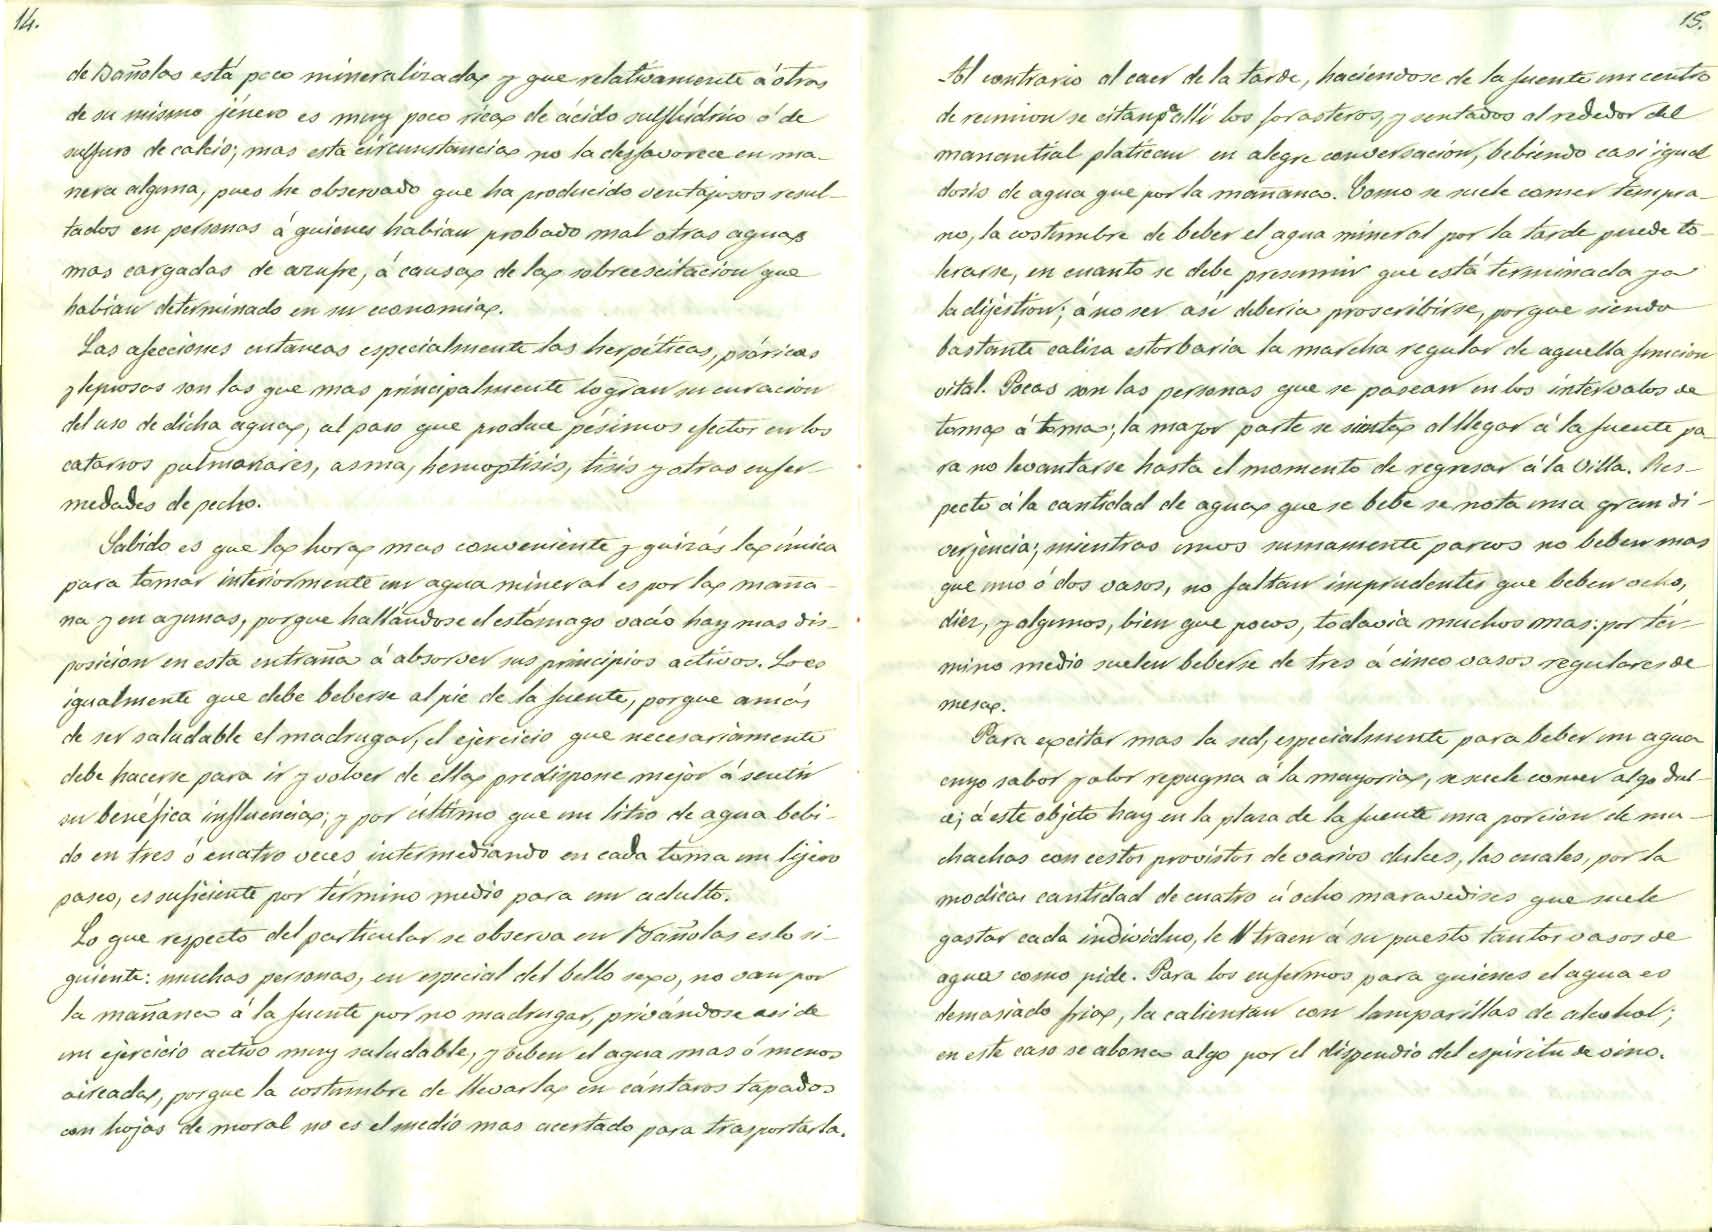 14.
de Bañolas está poco mineralizada y que relativamente á otras
de su mismo jénero es muy poco rica de ácido sulfhídrico ó de
sulfuro de calcio; mas esta circunstancia no la desfavorece en ma-
nera alguna, pues he observado que ha producido ventajosos resul-
tados en personas á quienes habian probado mal otras aguas
mas cargadas de azufre, á causa de la sobreescitacion que
habian determinado en su economia.
Las afecciones cutaneas especialmente las herpéticas, psóricas
y leprosas son las que mas principalmente logran su curacion
del uso de dicha agua, al paso que produce pésimos efectos en los
catarros pulmonares, asma, hemoptisis, tisis y otras enfer-
medades de pecho.
Sabido es que la hora mas conveniente y quizás la única
para tomar interiormente un agua mineral es por la maña-
na y en ayunas, porque hallándose el estómago vacío hay mas dis-
posicion en esta entraña á absorver sus principios activos. Lo es
igualmente que debe beberse al pie de la fuente, porque amás
de ser saludable el madrugar, el ejercicio que necesariamente
debe hacerse para ir y volver de ella predispone mejor á sentir
su benéfica influencia; y por último que un litro de agua bebi-
do en tres ó cuatro veces intermediando en cada toma un lijero
paseo, es suficiente por término medio para un adulto.
Lo que respecto del particular se observa en Bañolas es lo si-
guiente: muchas personas, en especial del bello sexo, no van por
la mañana á la fuente por no madrugar, privándose asi de
un ejercicio activo muy saludable, y beben el agua mas ó menos
aireada, porque la costumbre de llevarla en cántaros tapados
con hojas de moral no es el medio mas acertado para trasportarla.
15.
Al contrario al caer de la tarde, haciéndose de la fuente un centro
de reunion se citan pª allí los forasteros, y sentados al rededor del
manantial platican en alegre conversacion, bebiendo casi igual
dosis de agua que por la mañana. Como se suele comer tempra-
no, la costumbre de beber el agua mineral por la tarde puede to-
lerarse, en cuanto se debe presumir que está terminada ya
la dijestion; á no ser asi deberia proscribirse, porque siendo
bastante caliza estorbaria la marcha regular de aquella funcion
vital. Pocas son las personas que se pasean en los intervalos de
toma á toma; la mayor parte se sienta al llegar á la fuente pa-
ra no levantarse hasta el momento de regresar á la Villa. Res-
pecto á la cantidad de agua que se bebe se nota una gran di-
verjencia; mientras unos sumamente parcos no beben mas
que uno ó dos vasos, no faltan imprudentes que beben ocho,
diez, y algunos, bien que pocos, todavia muchos mas: por tér-
mino medio suelen beberse de tres á cinco vasos regulares de
mesa.
Para excitar mas la sed, especialmente para beber un agua
cuyo sabor y olor repugna á la mayoria, se suele comer algo dul-
ce; á este objeto hay en la plaza de la fuente una porcion de mu-
chachas con cestos provistos de varios dulces, las cuales, por la
modica cantidad de cuatro ú ocho maravedises que suele
gastar cada individuo, le traen á su puesto tantos vasos de
agua como pide. Para los enfermos para quienes el agua es
demasiado fria, la calientan con lamparillas de alcohol;
en este caso se abona algo por el dispendio del espíritu de vino.